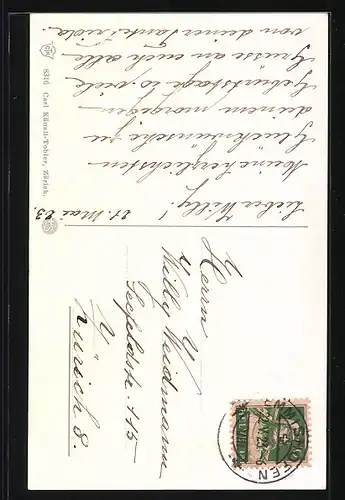 21. Mai 23.
Lieber Willy!
Meine herzlichsten
Glückwünsche zu
deinem morgigen
Geburtstage so viele
Grüsse an euch alle
von deiner Tante Frida.
8316 Carl Künzli-Tobler, Zürich.
Herrn
Willy Weidmann
Seefeldstr. 115
Zürich 8.